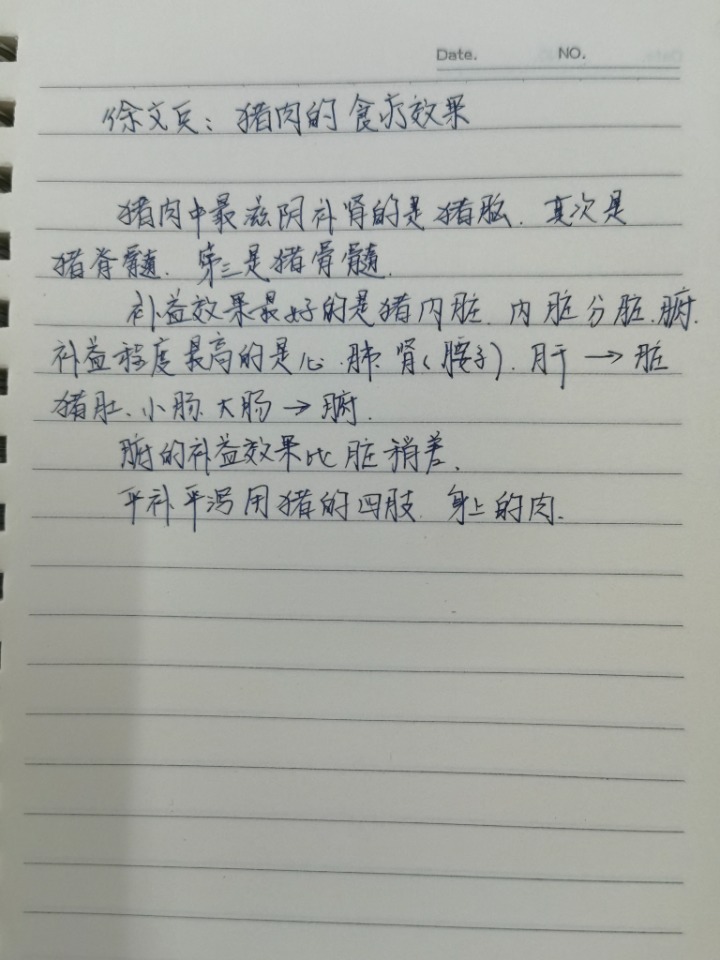 Date. NO.
徐文兵：猪肉的食疗效果
猪肉中最滋阴补肾的是猪脑．其次是
猪脊髓．第三是猪骨髓．
补益效果最好的是猪内脏．内脏分脏．腑．
补益程度最高的是心．肺．肾（腰子）．肝→脏
猪肚、小肠．大肠→腑．
腑的补益效果比脏稍差．
平补平泻用猪的四肢．身上的肉．